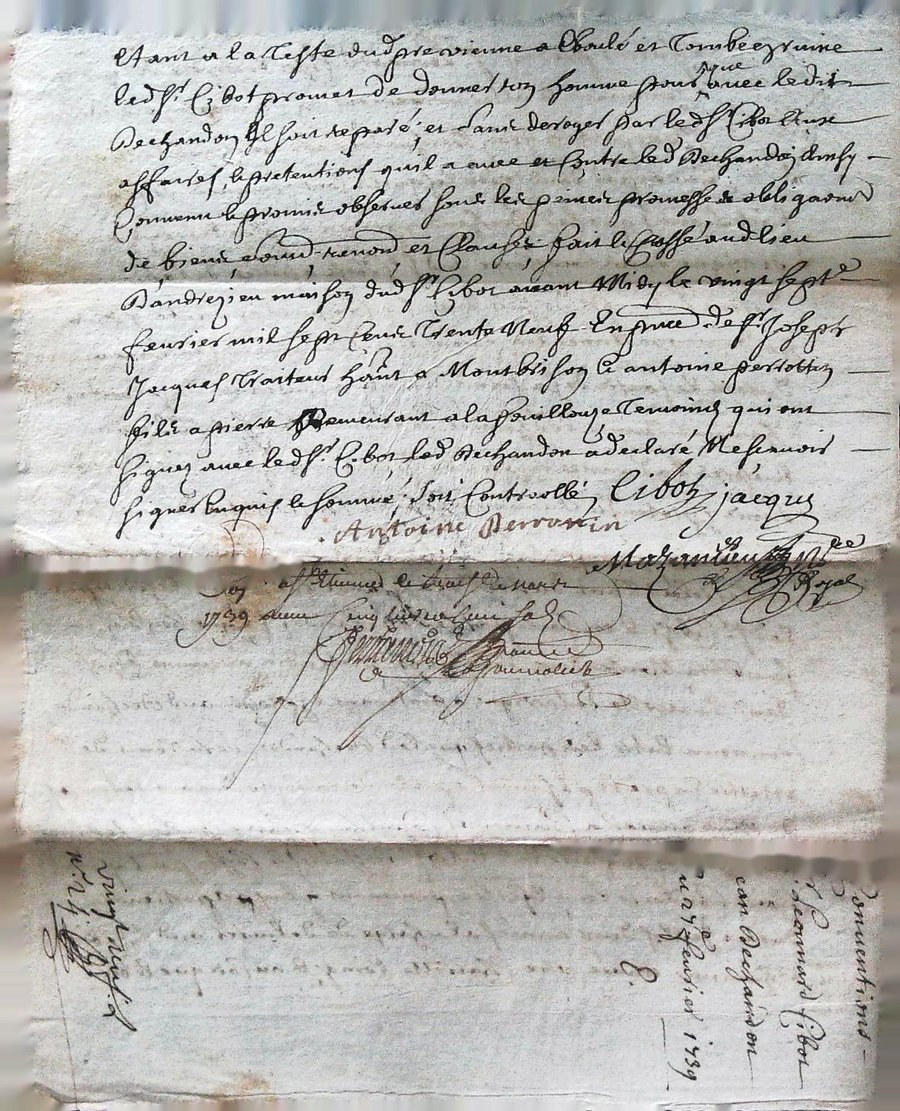 Etant a la Teste dud pre vienne a Eboulé et Tombee ruine
led Sr. Cibot promet de donner un homme pour que avec ledit
Dechandon Il soit reparé; et sans deroger par led Sr Cibot aux
affaires & pretentions quil a avec et Contre led Dechandon Ainsy
Convenu & promis observer sous les peines promesse & obligaons
de biens, soumd renond et Clauses, fait & passé aud lieu
Dandrezieu maison dud Sr Cibot avant Midy le vingt septe
fevrier mil sept Cens Trente Neuf En pnce de Sr Joseph
Jacques Traiteur haut a Montbrison & antoine perrottin
fils a pierre Demeurant a la fouillouze Temoins qui ont
signez avec led Sr. Cibot, led Dechandon a declaré Ne scavoir
signer Enquis & sommé. Soit Controollé Cibot jacques
Antoine Perrotin
Mazancieux Nore
Royal
1739
Conventions
Sr Leonnard Cibot
ean Dechandon
u 27e fevrier 1739
vingt neuf s
n.° 24